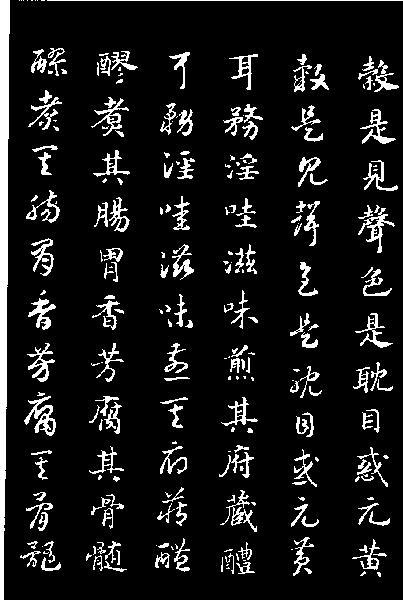 穀是見聲色是耽目惑元黃
穀是見聲色是耽目惑元黃
耳務淫哇滋味煎其府藏醴
耳務淫哇滋味煎其府藏醴
醪煑其腸胃香芳腐其骨髓
醪煑其腸胃香芳腐其骨髓